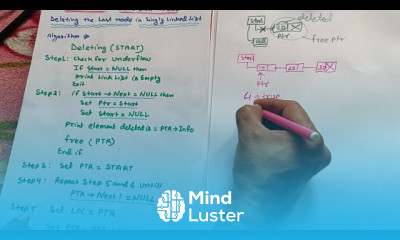 Deleting the Last node in Singly Linked List
Algorithm
Deleting (START)
Step1: Check for Underflow
If Start = NULL then
Print Link List is Empty
Exit
Step 2: if Start → Next = NULL then
Set Ptr = Start
Set Start = NULL
Print element deleted is = PTR → Info
free (PTR)
End if
Step 3: Set PTR = START
Step 4: Repeat Step 5 and 6 Until
PTR → Next != NULL
Step 5: Set LOC = PTR
Start
deleted
Ptr
free ptr
Start
Ptr
Mind
Luster